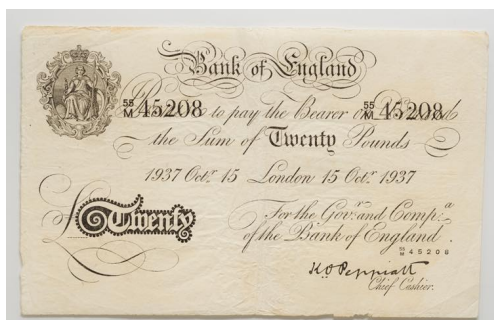 Bank of England
55/M 45208 to pay the Bearer on 55/M 45208
the Sum of Twenty Pounds
1937 Octr. 15 London 15 Octr. 1937
Twenty
For the Govr. and Compa.
of the Bank of England.
55/M 45208
K O Peppiatt
Chief Cashier.